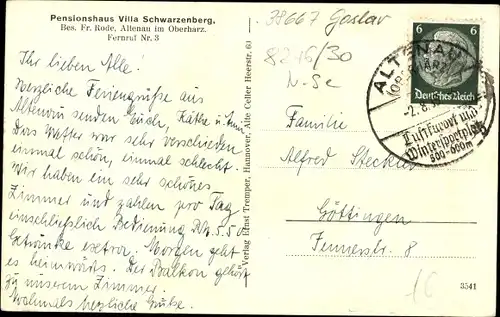 Pensionshaus Villa Schwarzenberg.
Bes. Fr. Rode, Altenau im Oberharz.
Fernruf Nr. 3
Ihr lieben Alle!
Herzliche Feriengrüße aus
Altenau senden Euch, Käthe u.
Das Wetter war sehr verschieden
einmal schön, einmal schlecht.
Wir haben ein sehr schönes
Zimmer und zahlen pro Tag
einschließlich Bedienung RM. 5.50
Getränke extra. Morgen geht
es heimwärts. Der Balkon gehört
zu unserem Zimmer.
Nochmals herzliche Grüße.
Verlag Ernst Tremper, Hannover, Alte Celler Heerstr. 60
38667 Goslar
8216/30
N-Sc
6 6
Deutsches Reich
ALTENAU
-2.8.
Luftkurort und
Wintersportplatz
500-600m
Familie
Alfred
Göttingen
8
3541